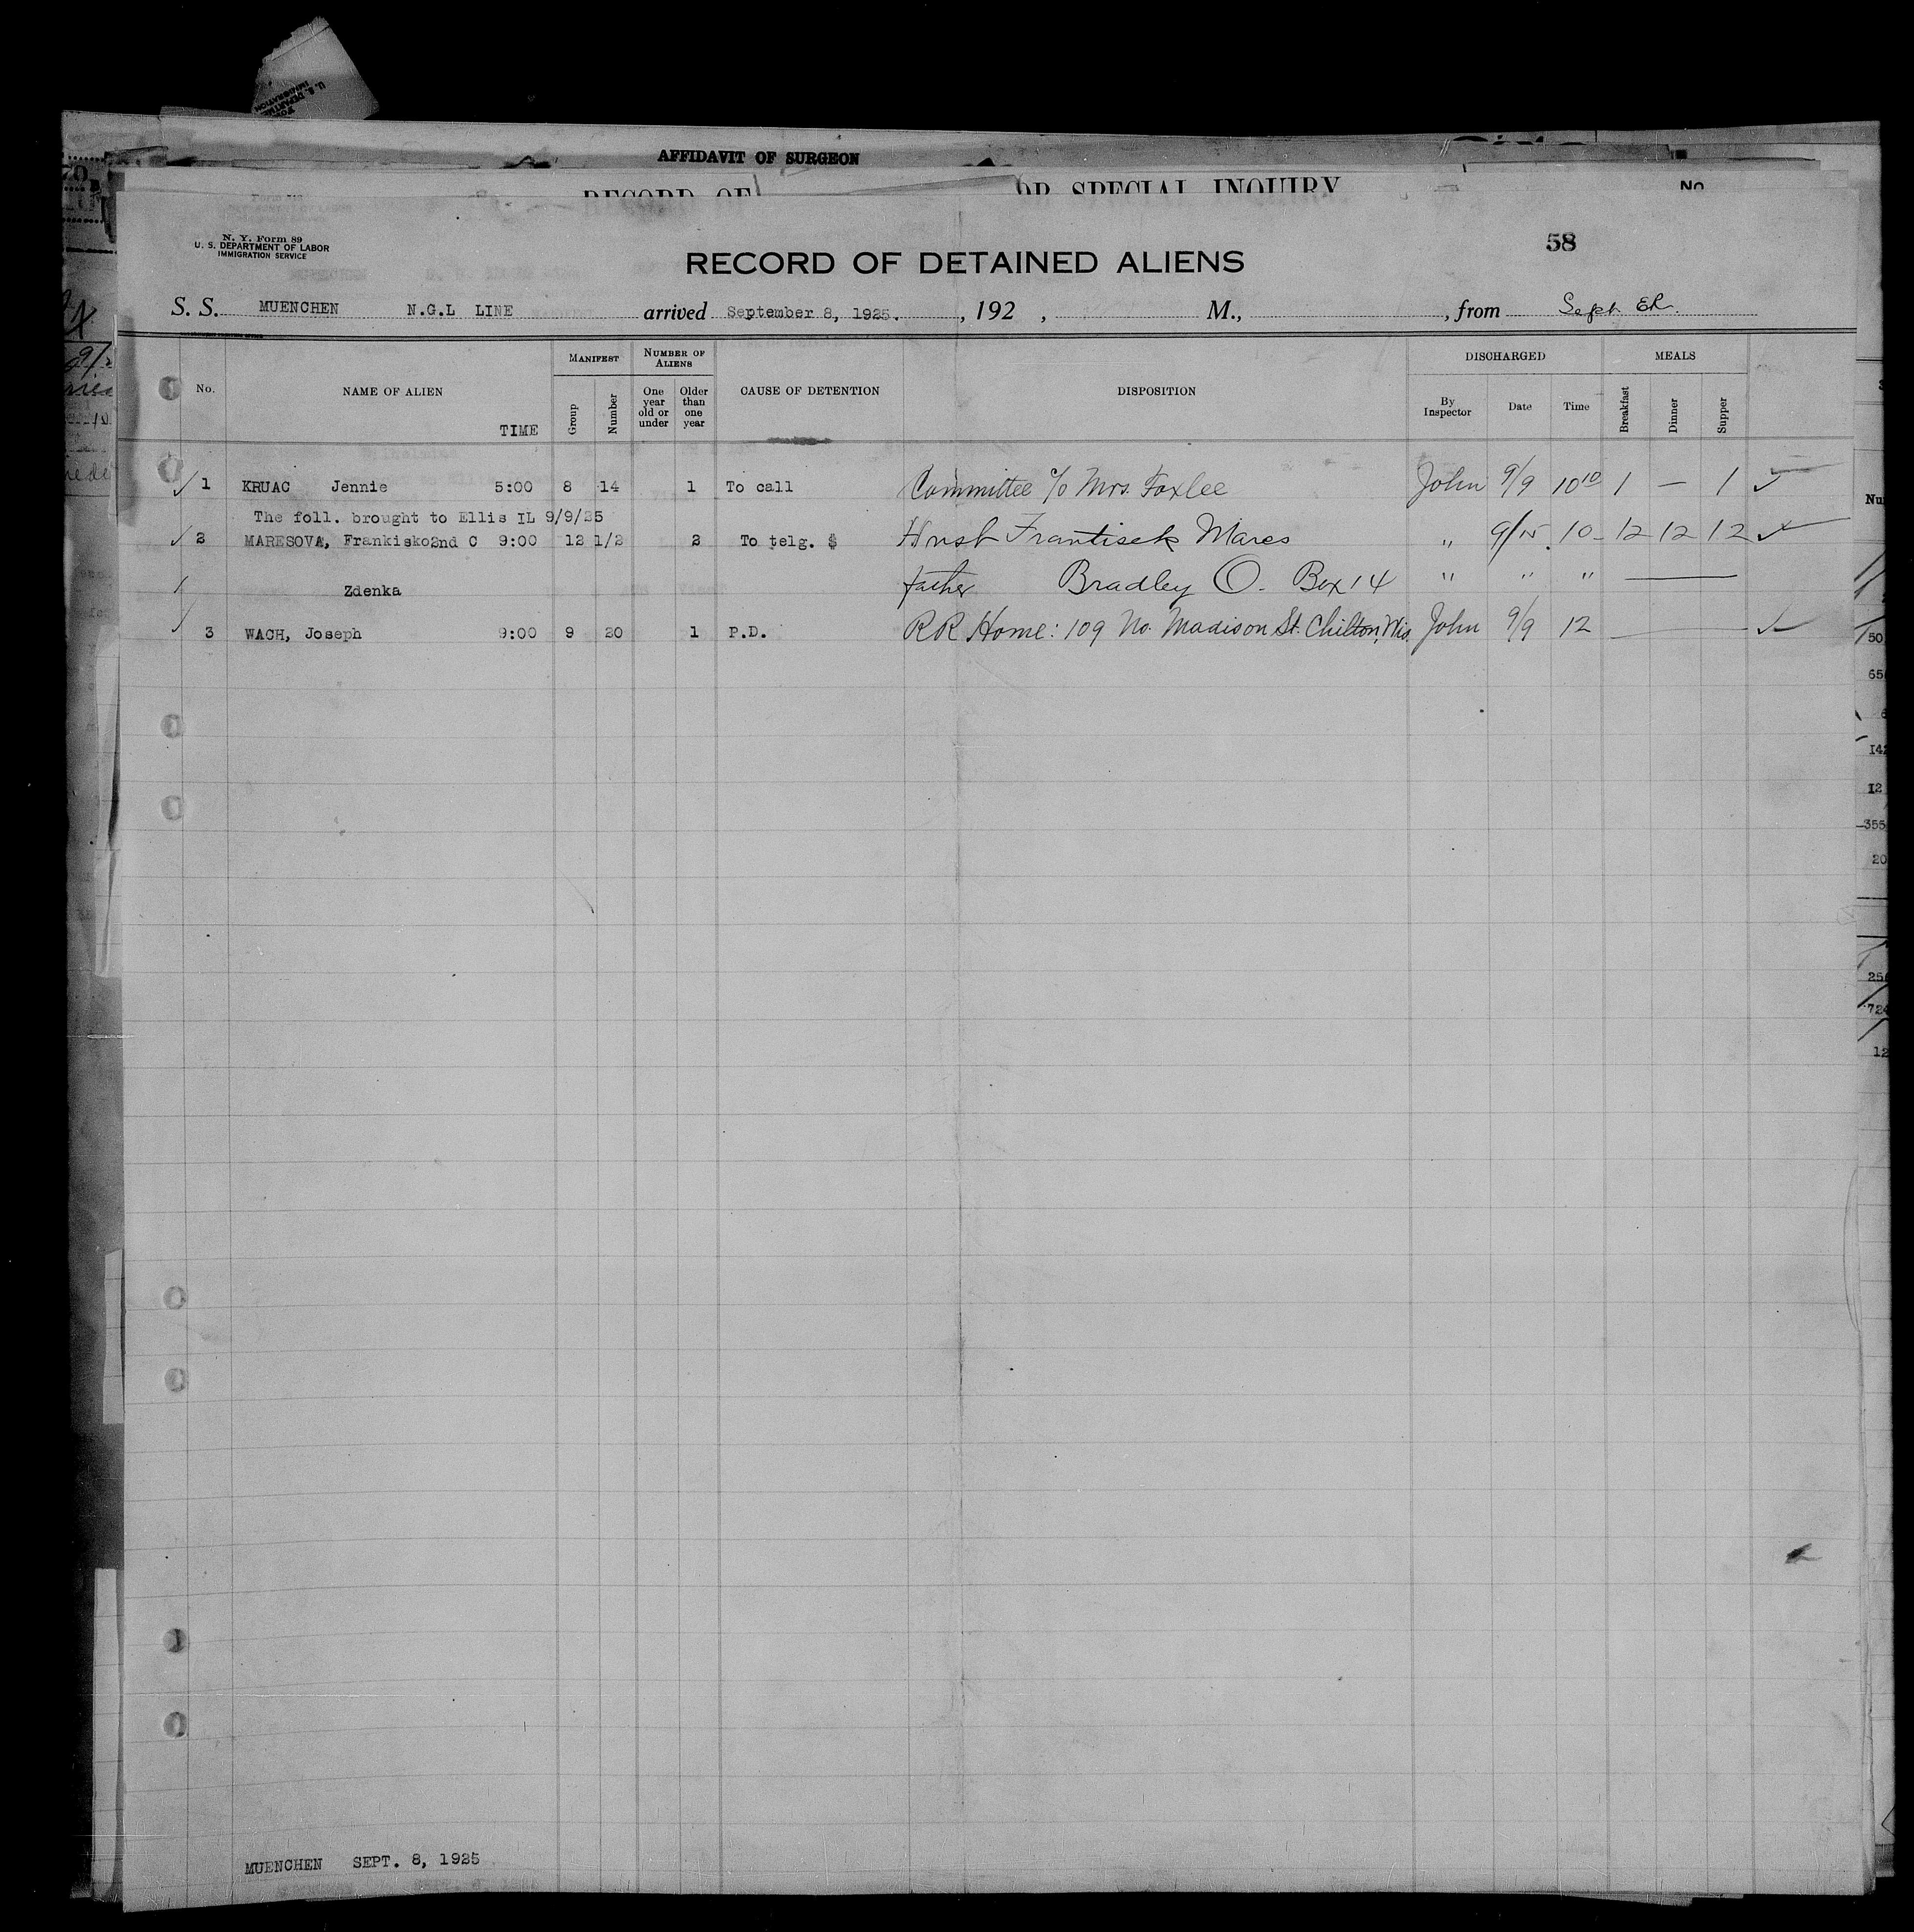 U. S. DEPARTM
IMMIGRATION
AFFIDAVIT OF SURGEON
RECORD OF OR SPECIAL INQUIRY No
N. Y. Form 89
U. S. DEPARTMENT OF LABOR
IMMIGRATION SERVICE
58
RECORD OF DETAINED ALIENS
S. S. MUENCHEN N.G.L LINE arrived September 8, 1925. , 192 , M., , from Sept.
MANIFEST NUMBER OF ALIENS DISCHARGED MEALS
No. NAME OF ALIEN TIME Group Number One year old or under Older than one year CAUSE OF DETENTION DISPOSITION By Inspector Date Time Breakfast Dinner Supper
✓ 1 KRUAC Jennie 5:00 8 14 1 To call Committee c/o Mrs. Foxlee John 9/9 10 10 1 — 1 ✓
The foll. brought to Ellis IL 9/9/25
✓ 2 MARESOVA, Frankisko 2nd C 9:00 12 1/2 2 To telg. $ Husb Frantisek Mares " 9/15 10- 12 12 12 ✓
Zdenka father Bradley O. Box 14 " " " —
3 WACH, Joseph 9:00 9 20 1 P.D. RR Home: 109 No. Madison St. Chilton, Wis. John 9/9 12 — ✓
MUENCHEN SEPT. 8, 1925